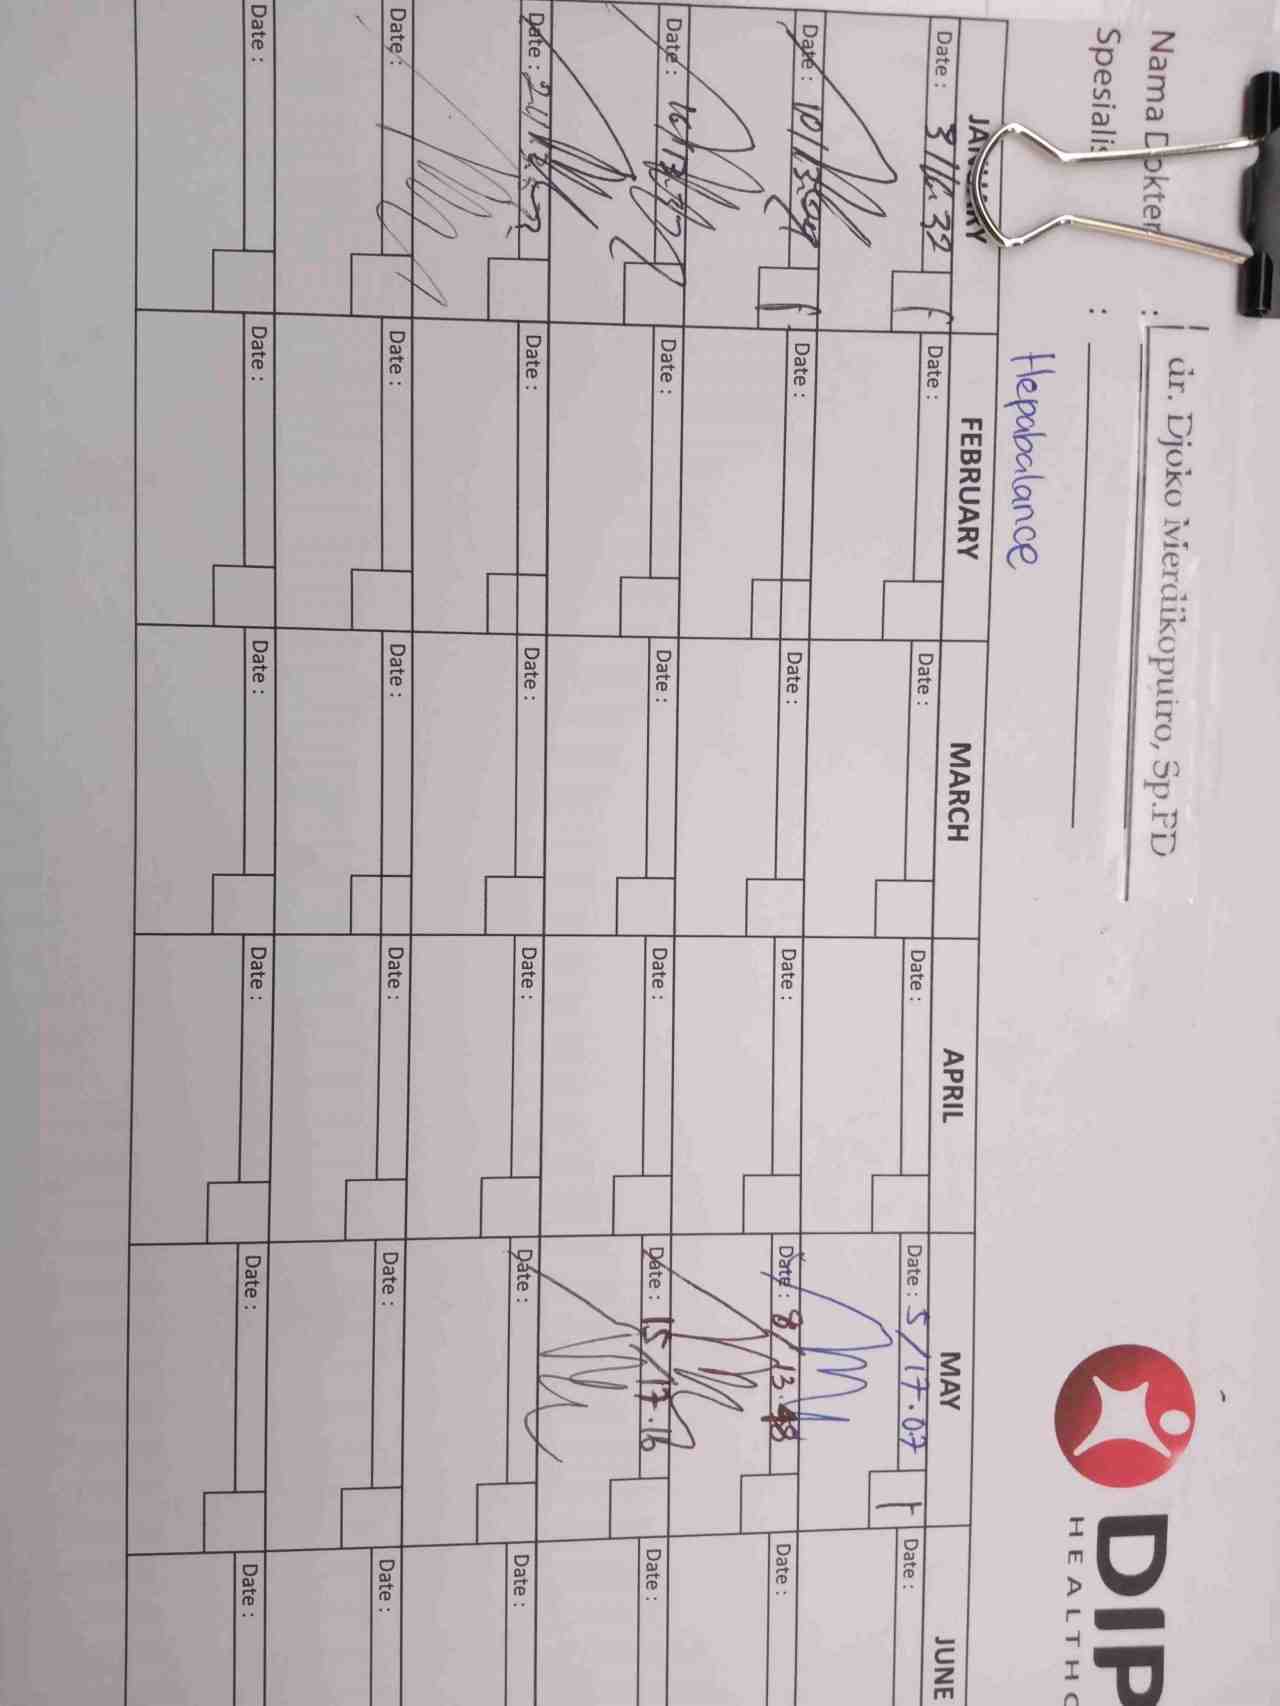 Nama Dokter : dr. Djoko Merdikoputro, Sp.PD
Spesialis :
DIP
HEALTHC
Hepabalance
JANUARY FEBRUARY MARCH APRIL MAY JUNE
Date : Date : Date : Date : Date : 5/17.07 Date :
Date : Date : Date : Date : Date : 8/13.48 Date :
Date : Date : Date : Date : Date : 15/17.16 Date :
Date : Date : Date : Date : Date : Date :
Date : Date : Date : Date : Date : Date :
Date : Date : Date : Date : Date : Date :